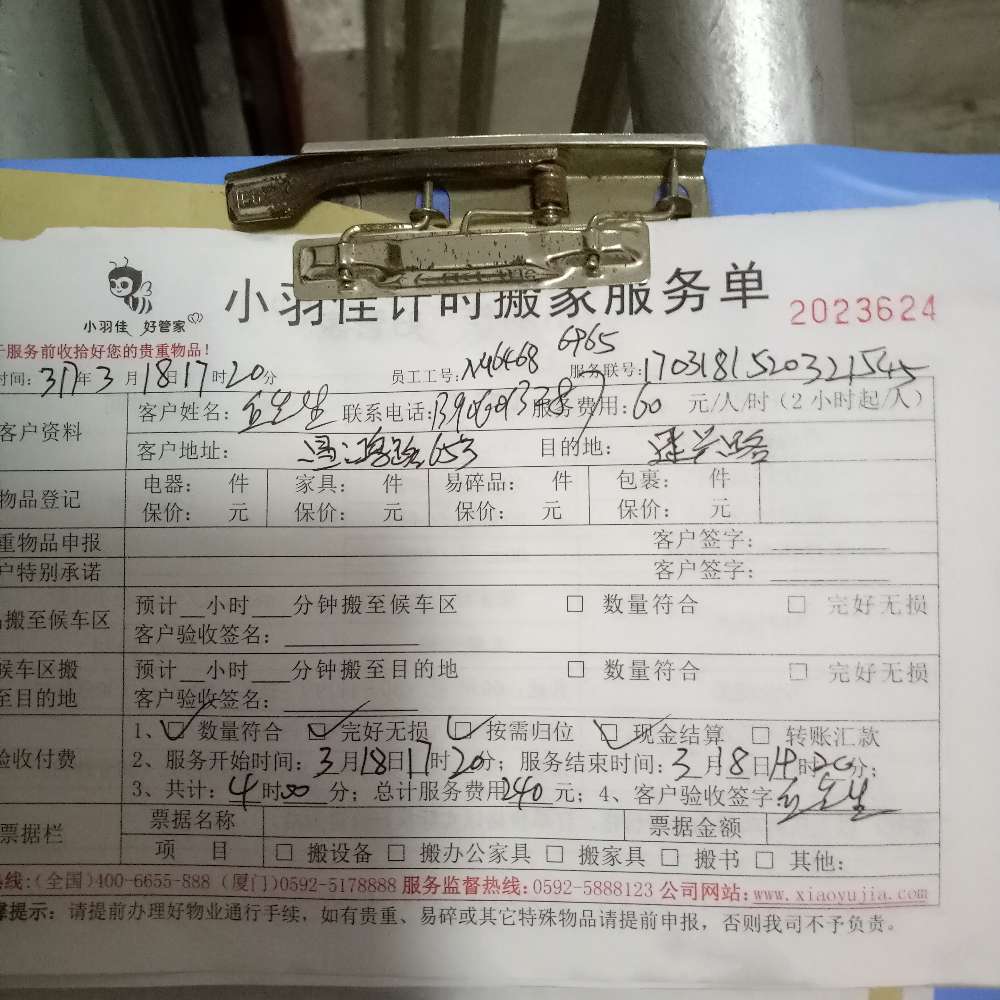 小羽佳计时搬家服务单
2023624
小羽佳 好管家
服务前收拾好您的贵重物品！
时间：317年3月18日17时20分 员工工号：N46468 6965 服务联号：1703181520321545
客户资料 客户姓名： 先生 联系电话： 服务费用：60 元/人/时（2小时起/人）
客户地址： 653 目的地：建兴路
物品登记 电器： 件 家具： 件 易碎品： 件 包裹： 件
保价： 元 保价： 元 保价： 元 保价： 元
重物品申报 客户签字：
户特别承诺 客户签字：
搬至候车区 预计__小时___分钟搬至候车区 □ 数量符合 □ 完好无损
客户验收签名：
候车区搬至目的地 预计__小时___分钟搬至目的地 □ 数量符合 □ 完好无损
客户验收签名：
验收付费 1、☑ 数量符合 ☑ 完好无损 ☑ 按需归位 ☑ 现金结算 □ 转账汇款
2、服务开始时间：3月18日17时20分；服务结束时间：3月18日 时 分；
3、共计：4时00分；总计服务费用240元；4、客户验收签字 先生
票据栏 票据名称 票据金额
项 目 □ 搬设备 □ 搬办公家具 □ 搬家具 □ 搬书 □ 其他：
热线：（全国）400-6655-888（厦门）0592-5178888 服务监督热线：0592-5888123 公司网站：www.xiaoyujia.com
提示：请提前办理好物业通行手续，如有贵重、易碎或其它特殊物品请提前申报，否则我司不予负责。